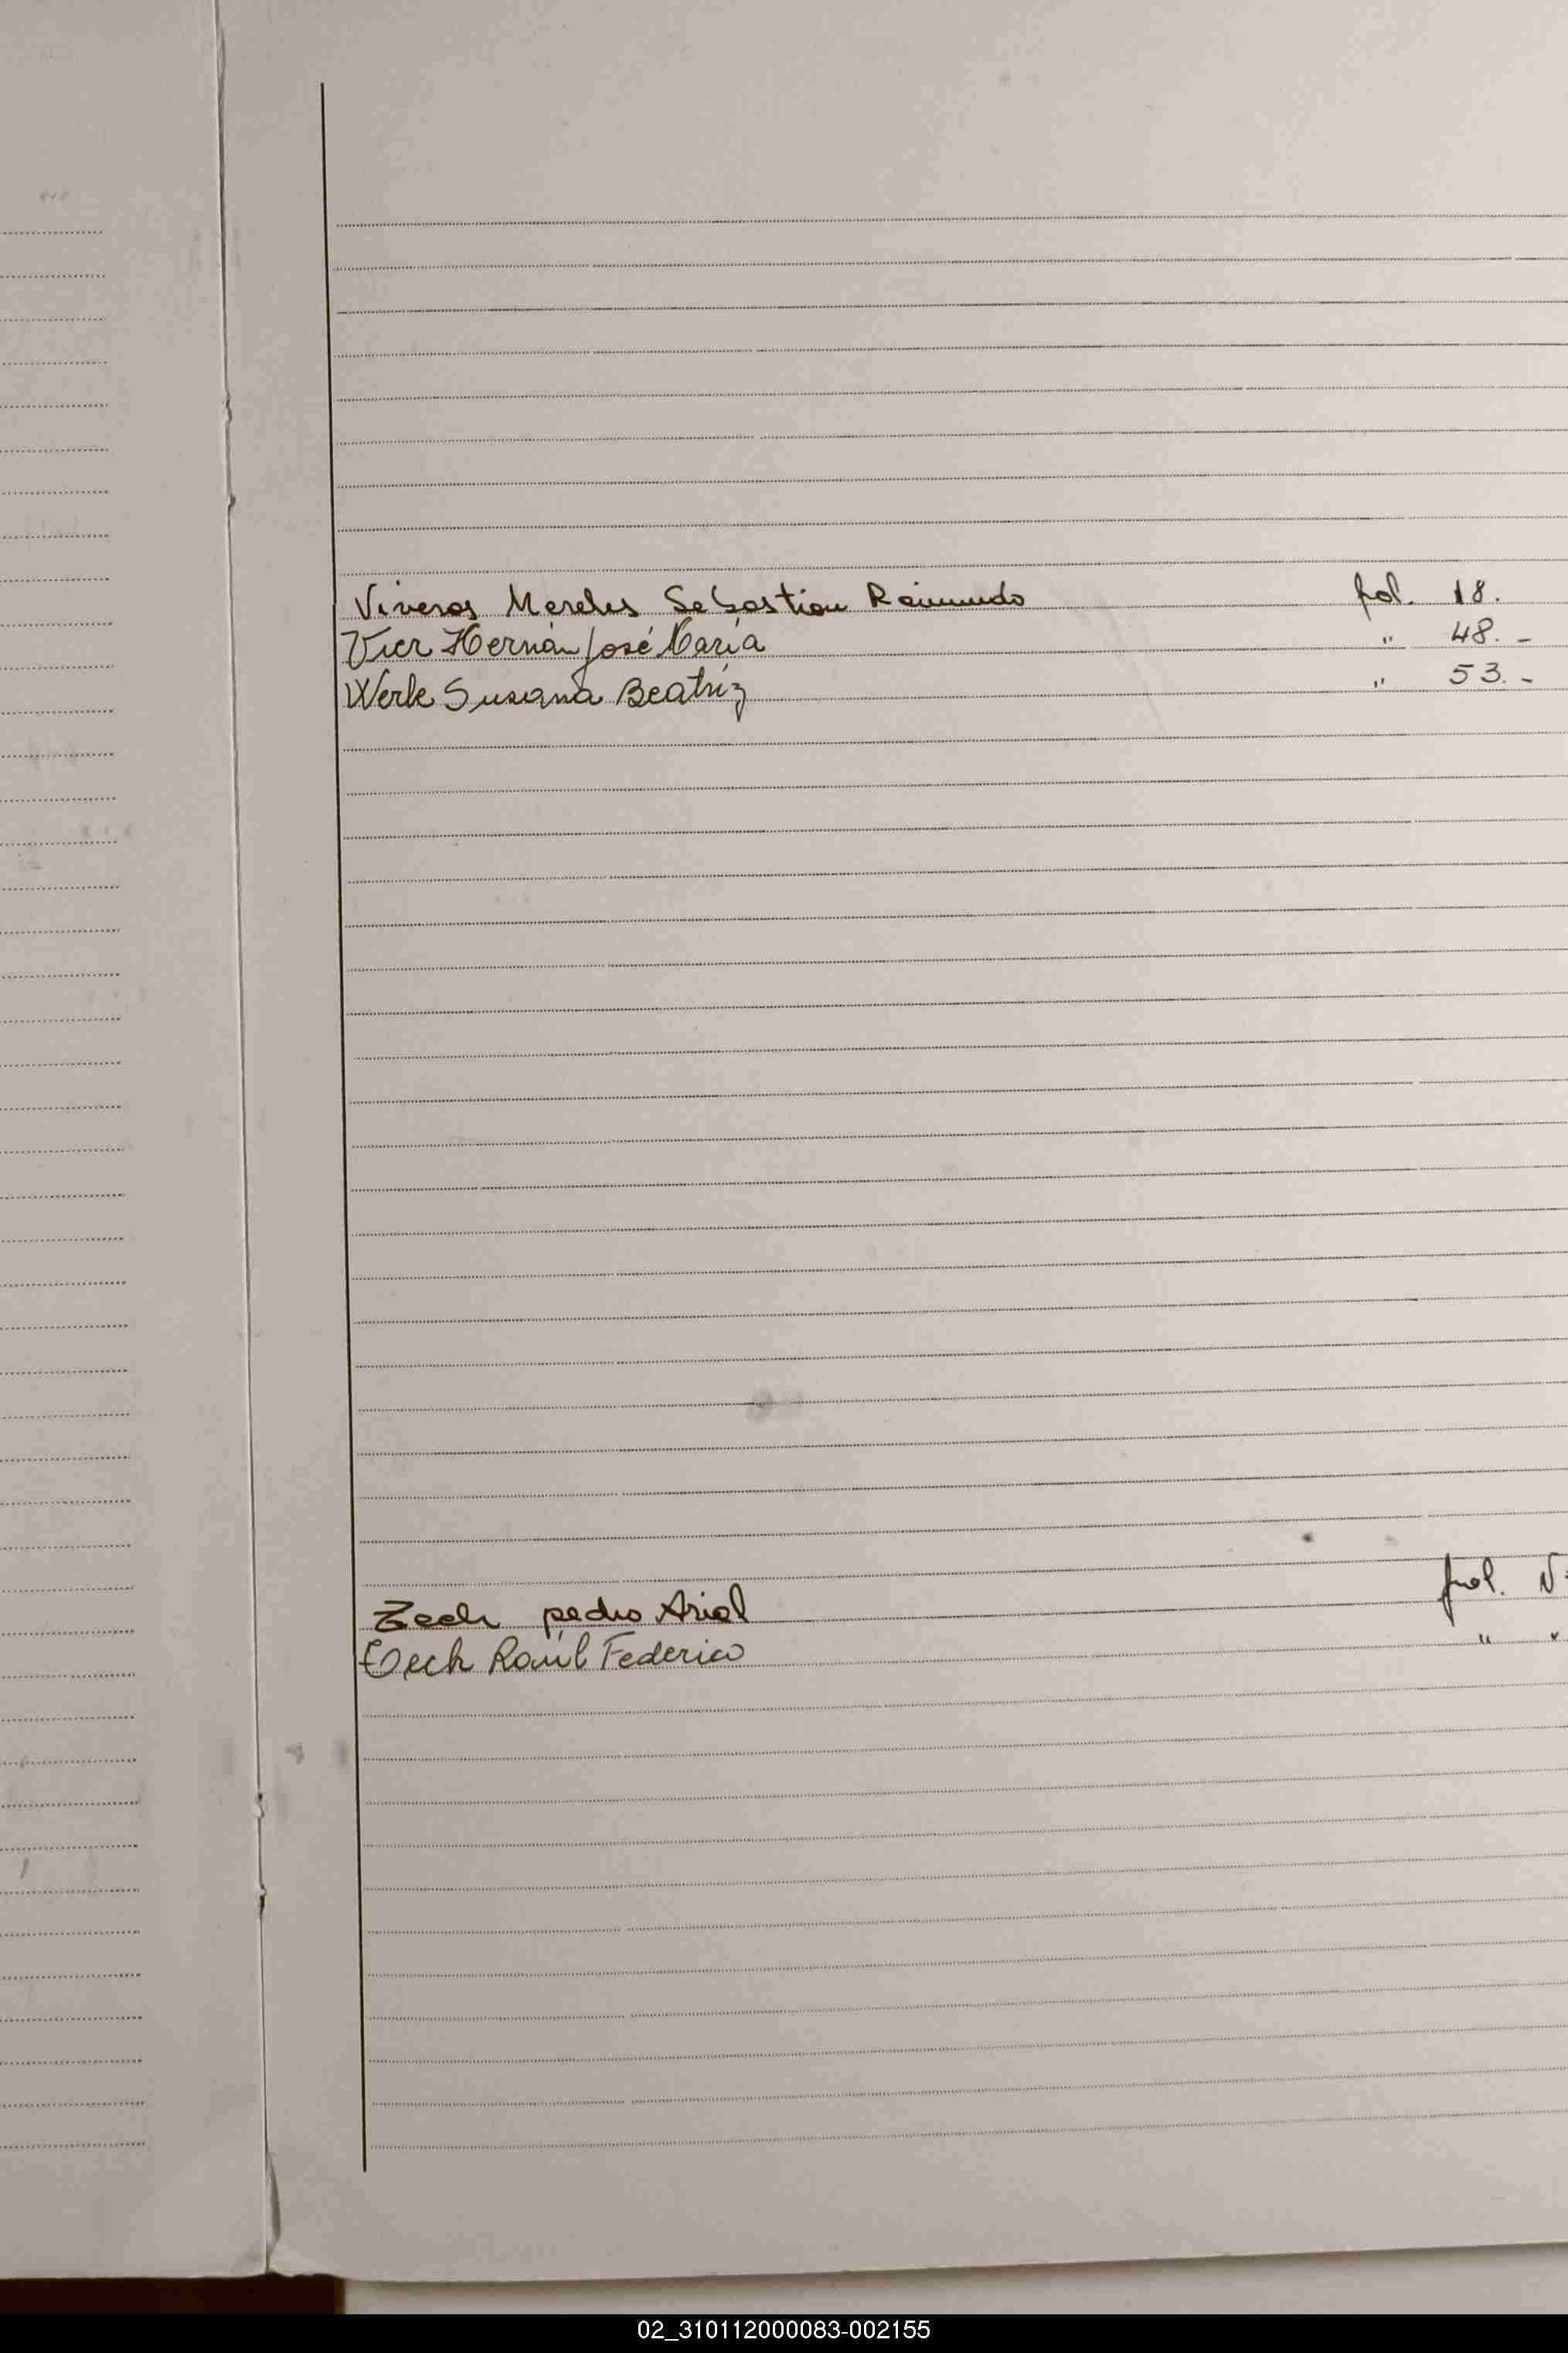 Viveros Mereles Sebastian Raimundo fol. 18.
Vier Hernán José María " 48. -
Werle Susana Beatriz " 53. -
Zech pedro Ariel fol. N
Zech Raúl Federico " "
02_310112000083-002155